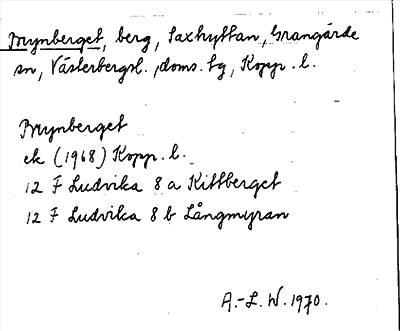 Brynberget, berg, Saxhyttan, Grangärde
sn, Västerbergsl. doms. tg, Kopp. l.
Brynberget
ek (1968) Kopp. l.
12 F Ludvika 8 a Kittberget
12 F Ludvika 8 b Långmyran
A.-L. W. 1970.